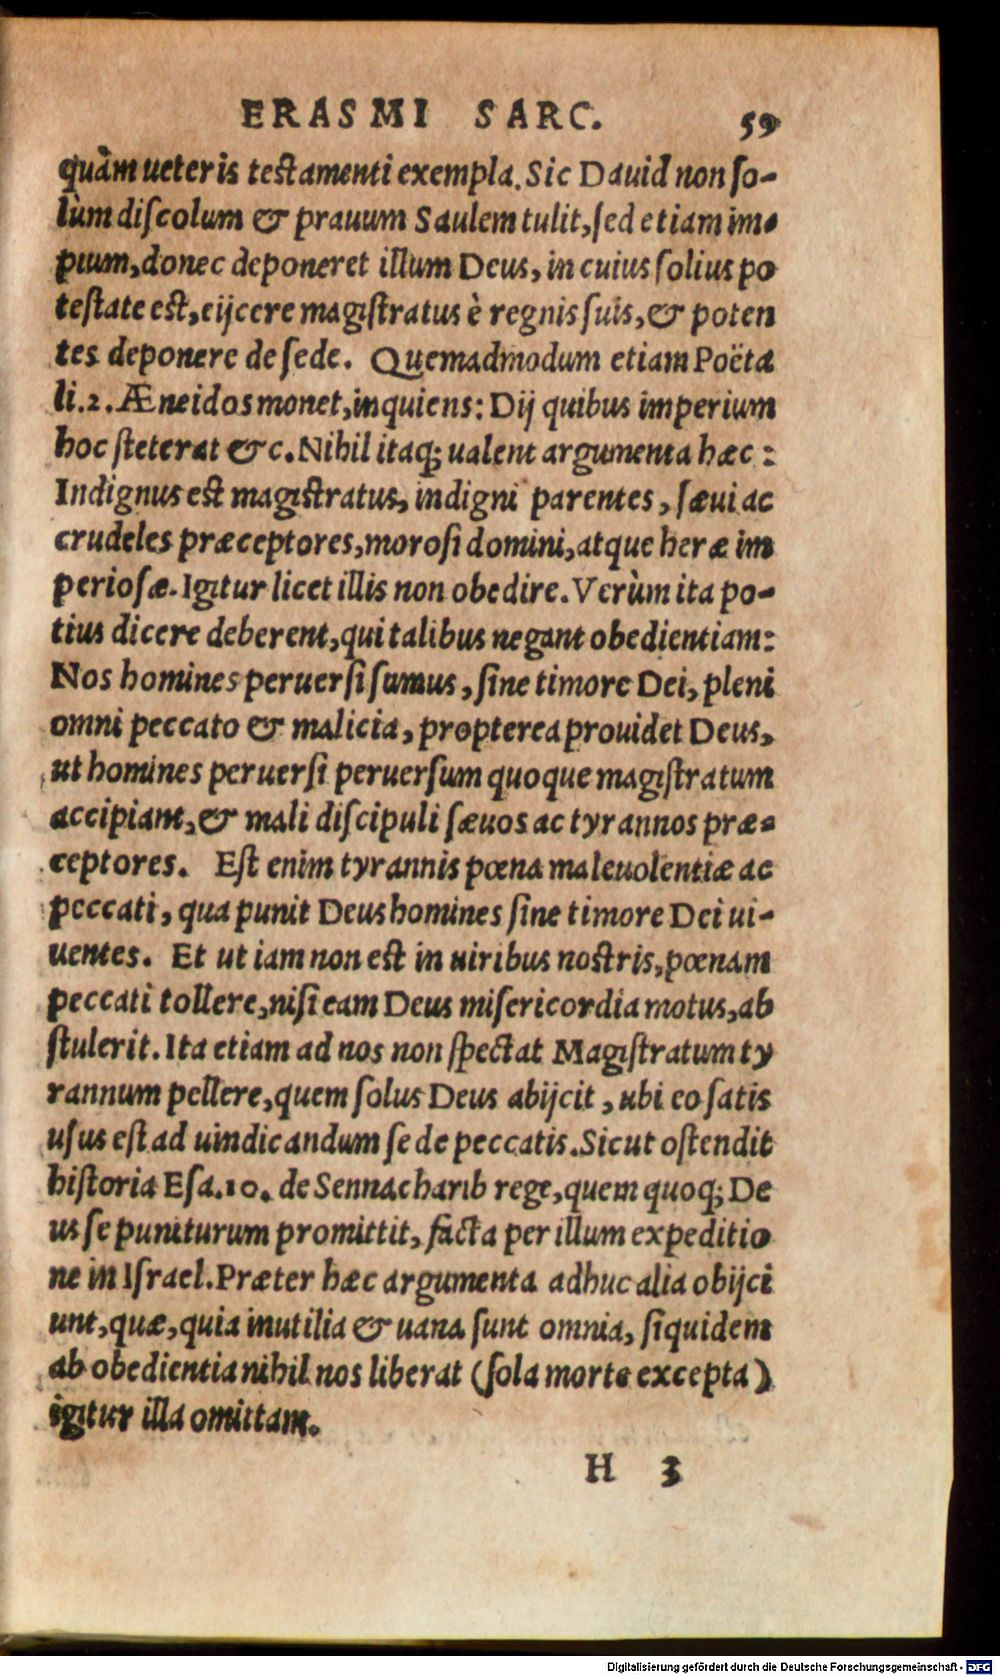 ERASMI SARC. 59
quàm ueteris testamenti exempla. Sic Dauid non so-
lùm discolum & prauum Saulem tulit, sed etiam im-
pium, donec deponeret illum Deus, in cuius solius po
testate est, eijcere magistratus è regnis suis, & poten
tes deponere de sede. Quemadmodum etiam Poëta
li.2. Æneidos monet, inquiens: Dij quibus imperium
hoc steterat &c. Nihil itaq; ualent argumenta hæc:
Indignus est magistratus, indigni parentes, sæui ac
crudeles præceptores, morosi domini, atque heræ im
periosæ. Igitur licet illis non obedire. Verùm ita po-
tius dicere deberent, qui talibus negant obedientiam:
Nos homines peruersi sumus, sine timore Dei, pleni
omni peccato & malicia, propterea prouidet Deus,
ut homines peruersi peruersum quoque magistratum
accipiant, & mali discipuli sæuos ac tyrannos præ-
ceptores. Est enim tyrannis pœna maleuolentiæ ac
peccati, qua punit Deus homines sine timore Dei ui-
uentes. Et ut iam non est in uiribus nostris, pœnam
peccati tollere, nisi eam Deus misericordia motus, ab
stulerit. Ita etiam ad nos non spectat Magistratum ty
rannum pellere, quem solus Deus abijcit, ubi eo satis
usus est ad uindicandum se de peccatis. Sicut ostendit
historia Esa.10. de Sennacharib rege, quem quoq; De
us se puniturum promittit, facta per illum expeditio
ne in Israel. Præter hæc argumenta adhuc alia obijci
unt, quæ, quia inutilia & uana sunt omnia, siquidem
ab obedientia nihil nos liberat (sola morte excepta)
igitur illa omittam.
H 3
Digitalisierung gefördert durch die Deutsche Forschungsgemeinschaft - DFG